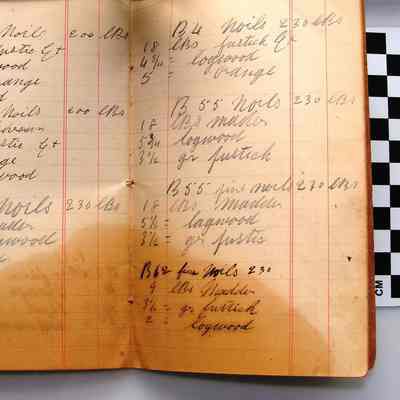 Noil 200 lbs
fustic Ext
wood
orange
Noils 200 lbs
fustic Ext
wood
Noils 230 lbs
madder
logwood
B4 Noils 230 lbs
18 lbs fustick Ex
4 3/10 = logwood
5 = orange
B55 Noils 230 lbs
18 lbs madder
logwood
3 1/2 = gr fustick
B55 fine noils 230 lbs
18 lbs madder
5 1/2 = logwood
3 1/2 = gr fustic
fine Noils 230
9 lbs Madder
3 1/2 = gr fustick
2 = logwood
CM